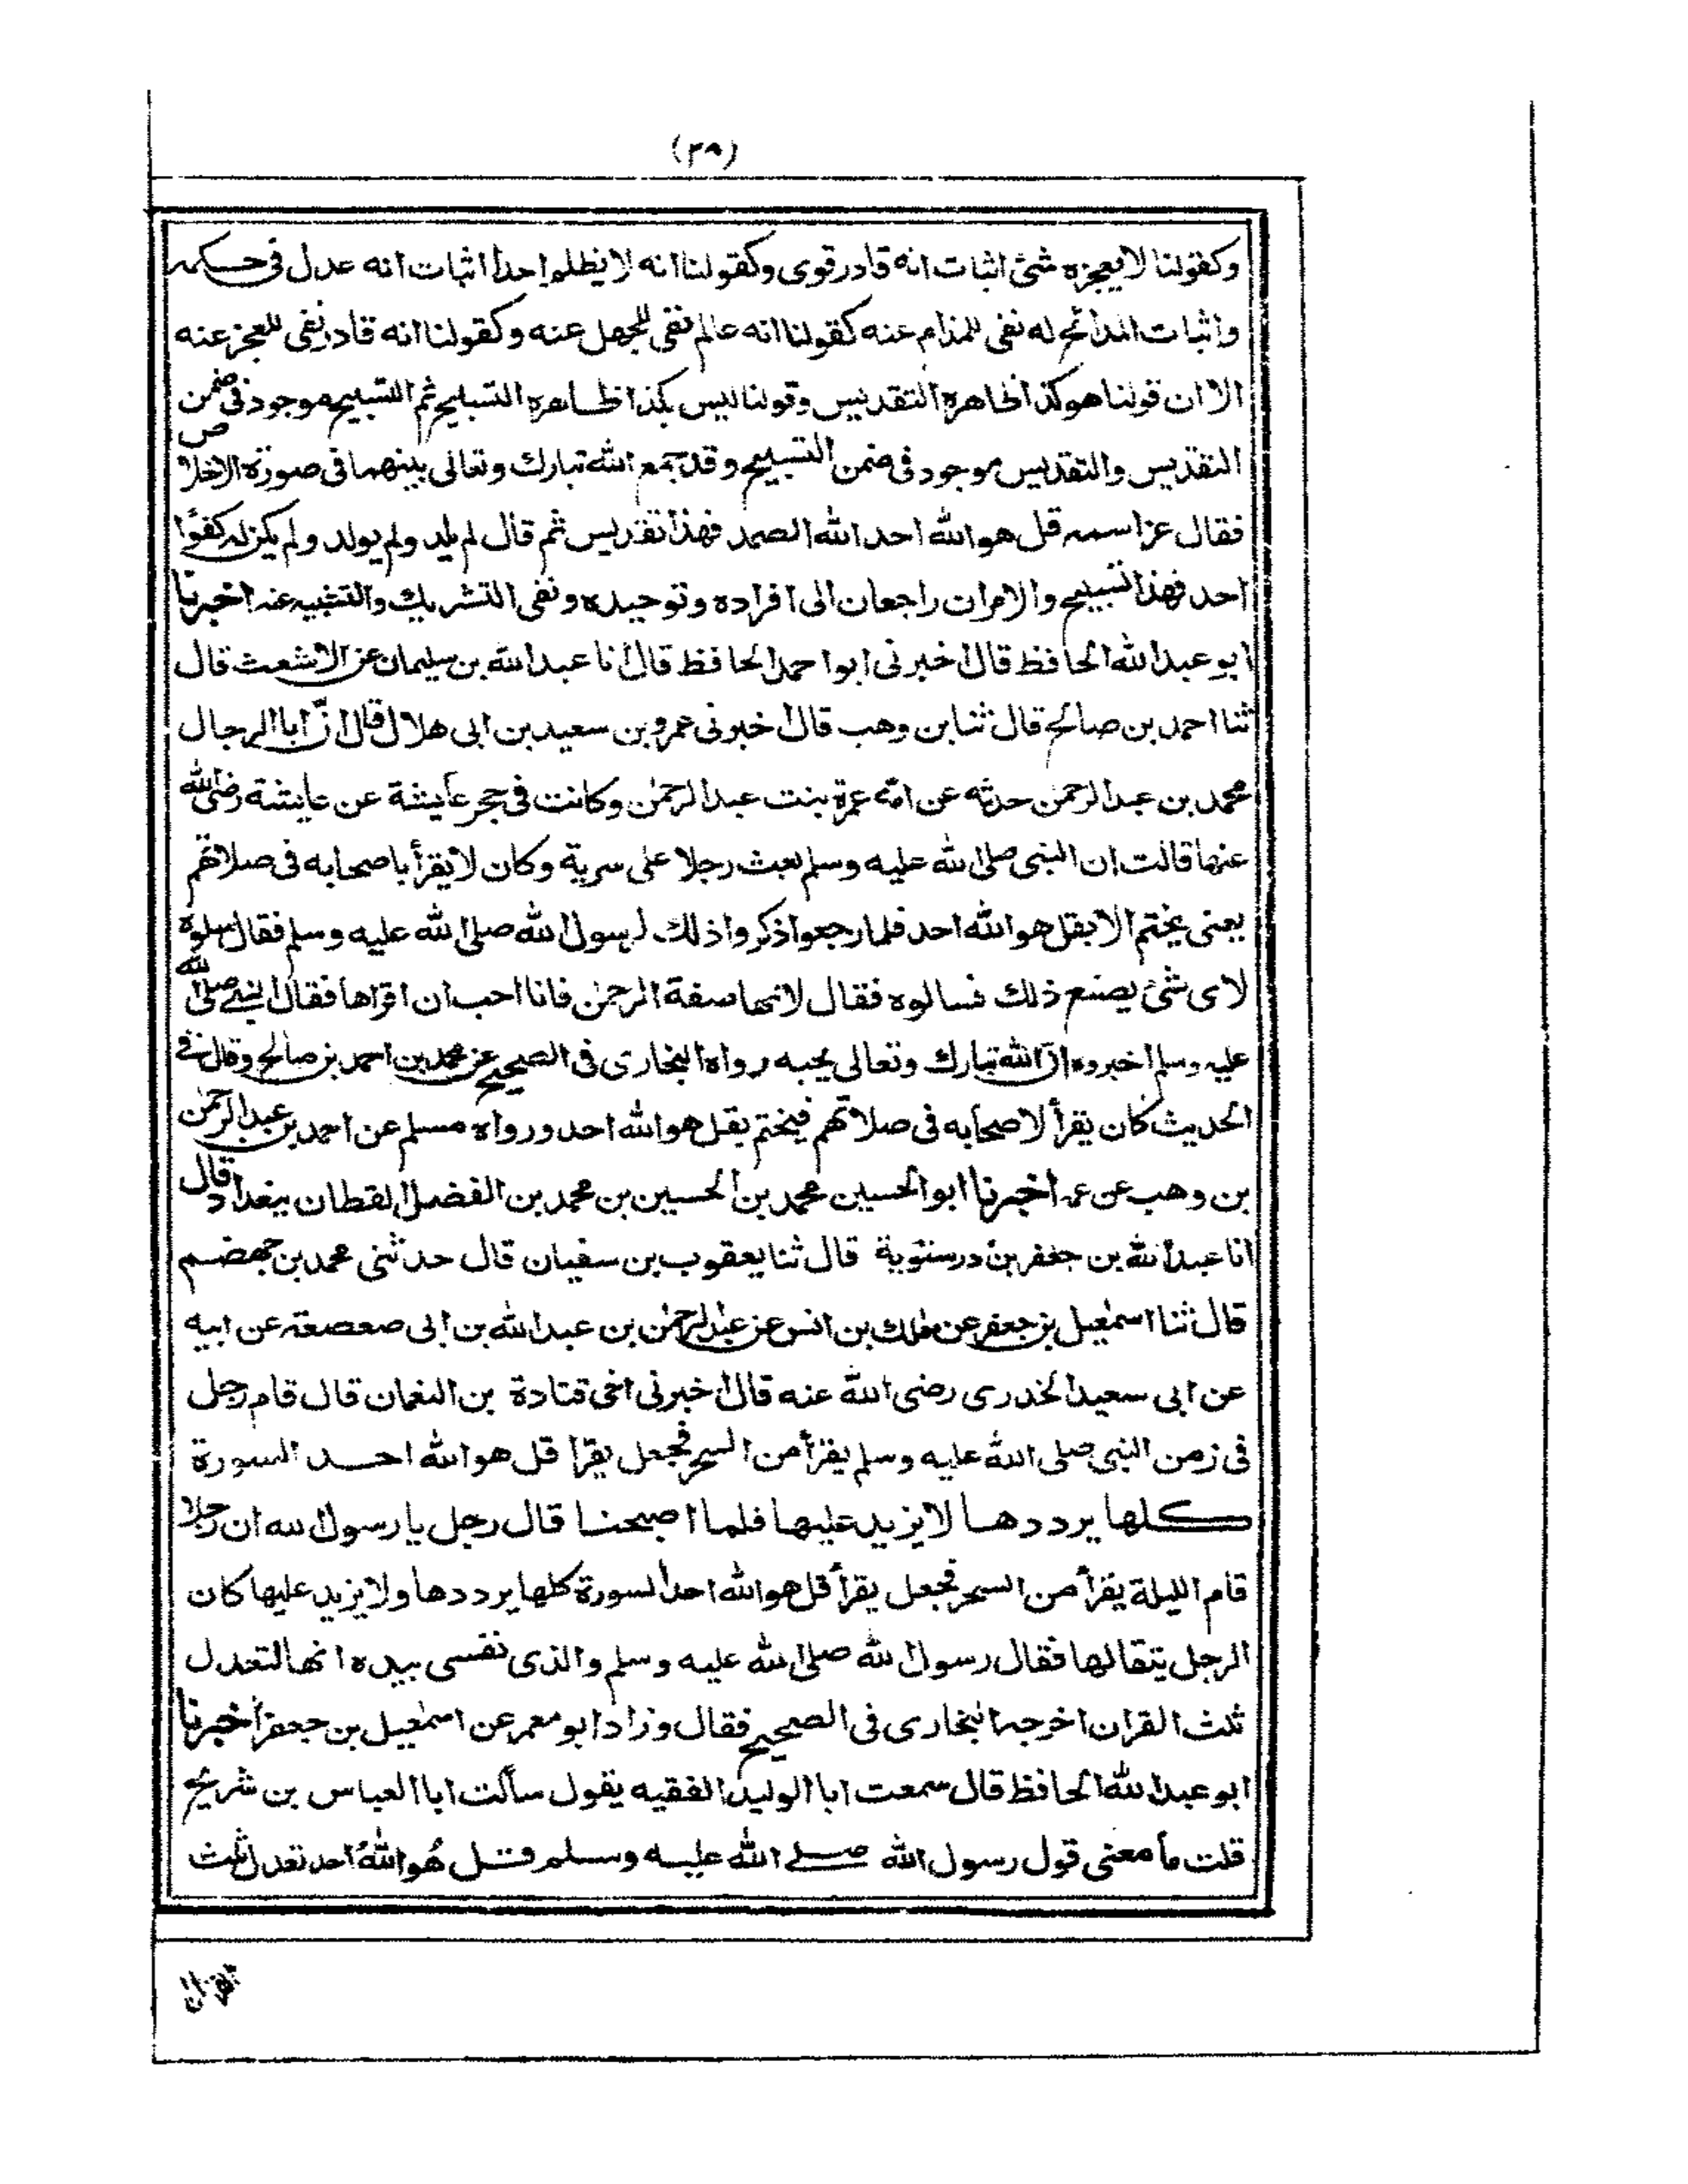 (٢٩)
وكقولنا لا يعجزه شئ اثبات انه قادر قوى وكقولنا انه لا يظلم احدا اثبات انه عدل فى حكمه
واثبات المدائح له نفى للمذام عنه كقولنا انه عالم نفى للجهل عنه وكقولنا انه قادر نفى للعجز عنه
الا ان قولنا هو كذا ظاهره التقديس وقولنا ليس بكذا ظاهره التسبيح ثم التسبيح موجود فى ضمن
التقديس والتقديس موجود فى ضمن التسبيح وقد جمع الله تبارك وتعالى بينهما فى صورة الاخلاص
فقال عز اسمه قل هو الله احد الله الصمد فهذا تقديس ثم قال لم يلد ولم يولد ولم يكن له كفوًا
احد فهذا تسبيح والامران راجعان الى افراده وتوحيده ونفى التشريك والتشبيه عنه اخبرنا
ابو عبد الله الحافظ قال اخبرنى ابو احمد الحافظ قال انا عبد الله بن سليمان عن الاشعث قال
ثنا احمد بن صالح قال ثنا بن وهب قال اخبرنى عمرو بن سعيد بن ابى هلال قال انّ ابا الرجال
محمد بن عبد الرحمن حدثه عن امه عمرة بنت عبد الرحمن وكانت فى حجر عايشة عن عايشة رضى الله
عنها قالت ان النبى صلى الله عليه وسلم بعث رجلا على سرية وكان لا يقرأ باصحابه فى صلاتهم
يعنى يختم الا بقل هو الله احد فلما رجعوا ذكروا ذلك لرسول الله صلى الله عليه وسلم فقال سلوه
لاى شئ يصنع ذلك فسالوه فقال لانها صفة الرحمن فانا احب ان اقراها فقال النبى صلى الله
عليه وسلم اخبروه انّ الله تبارك وتعالى يحبه رواه البخارى فى الصحيح عن محمد بن احمد بن صالح وقال فى
الحديث كان يقرأ لاصحابه فى صلاتهم فيختم بقل هو الله احد ورواه مسلم عن احمد بن عبد الرحمن
بن وهب عن عمه اخبرنا ابو الحسين محمد بن الحسين بن محمد بن الفضل القطان ببغداد قال
انا عبد الله بن جعفر بن درستوية قال ثنا يعقوب بن سفيان قال حدثنى محمد بن جهضم
قال ثنا اسمعيل بن جعفر عن ملك بن انس عن عبد الرحمن بن عبد الله بن ابى صعصعة عن ابيه
عن ابى سعيد الخدرى رضى الله عنه قال اخبرنى اخى قتادة بن النعمان قال قام رجل
فى زمن النبى صلى الله عليه وسلم يقرأ من السحر فجعل يقرا قل هو الله احد السورة
كلها يرددها لا يزيد عليها فلما اصبحنا قال رجل يا رسول الله ان رجلا
قام الليلة يقرأ من السحر فجعل يقرأ قل هو الله احد السورة كلها يرددها ولا يزيد عليها كان
الرجل يتقالها فقال رسول الله صلى الله عليه وسلم والذى نفسى بيده انها لتعدل
ثلث القران اخرجه البخارى فى الصحيح فقال وزاد ابو معمر عن اسمعيل بن جعفر اخبرنا
ابو عبد الله الحافظ قال سمعت ابا الوليد الفقيه يقول سألت ابا العباس بن شريح
قلت ما معنى قول رسول الله صلى الله عليه وسلم قل هُو اللهُ احد تعدل ثلث
القران